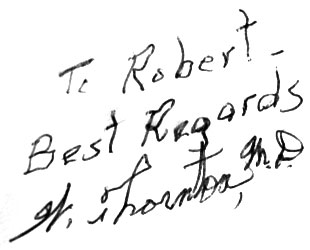 To Robert -
Best Regards
W. Thornton, M.D.